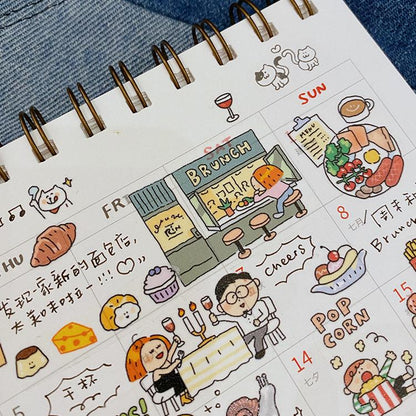 SUN
FRI
HU
BRUNCH
MENU
8
七月
Brunch
发现一家新的面包店，
太美味啦!!!♡
cheers
干杯
POP
CORN
14
七夕
15